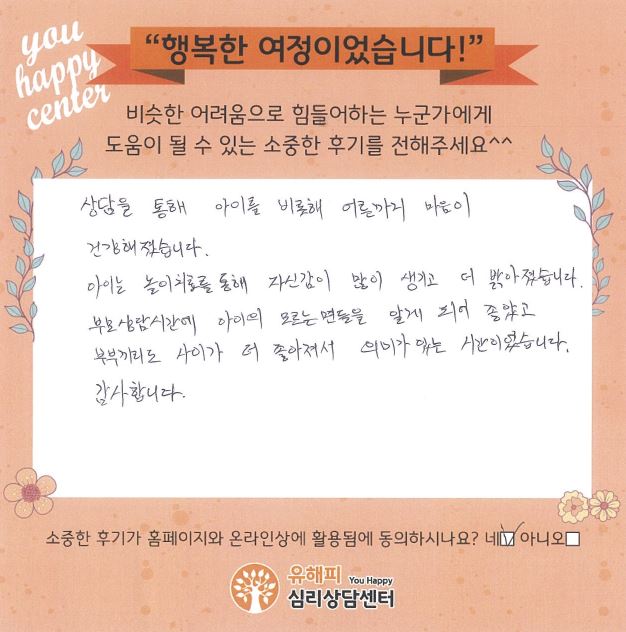 you
happy
center
“행복한 여정이었습니다!”
비슷한 어려움으로 힘들어하는 누군가에게
도움이 될 수 있는 소중한 후기를 전해주세요^^
상담을 통해 아이를 비롯해 어른까지 마음이
건강해졌습니다.
아이는 놀이치료를 통해 자신감이 많이 생기고 더 밝아졌습니다.
부모상담시간에 아이의 모르는 면들을 알게 되어 좋았고
부부끼리도 사이가 더 좋아져서 의미가 있는 시간이었습니다.
감사합니다.
소중한 후기가 홈페이지와 온라인상에 활용됨에 동의하시나요? 네☑ 아니오☐
유해피 You Happy
심리상담센터